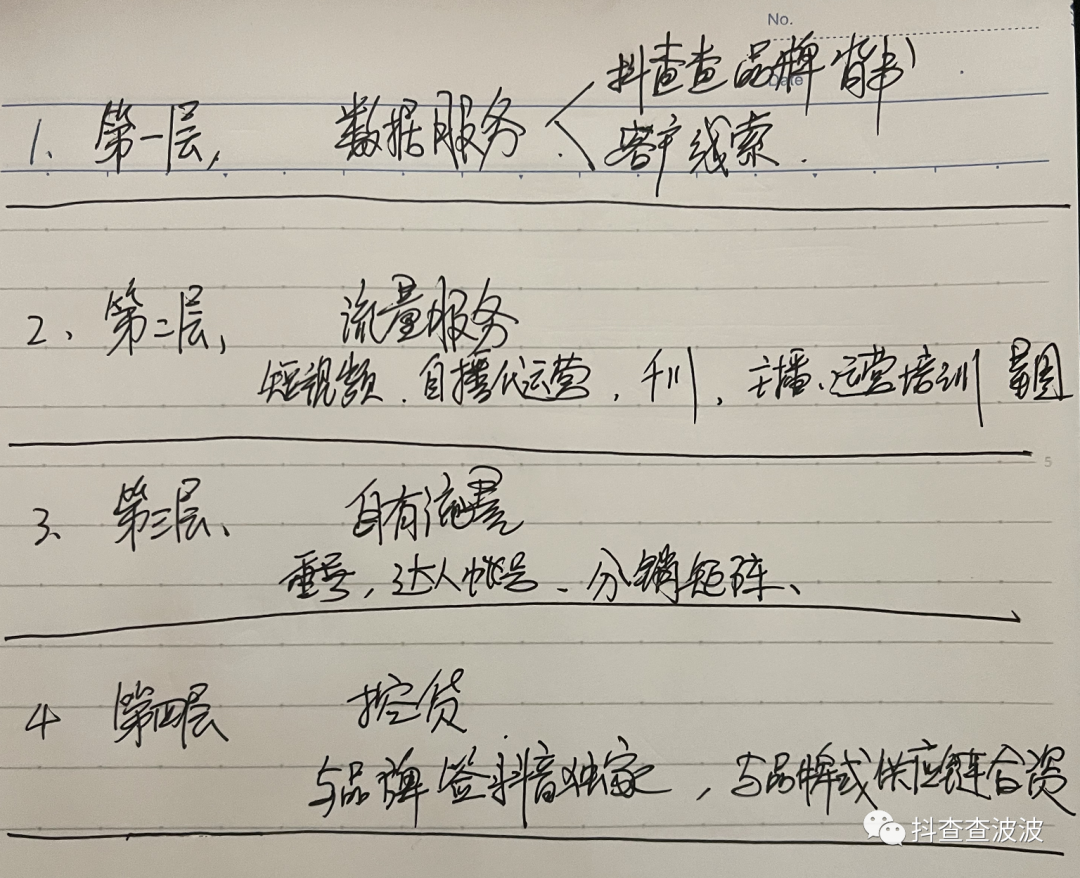 No.
Date
抖查查品牌背书
1、第一层, 数据服务
客户线索.
2、第二层, 流量服务
短视频、自播代运营, 千川, 主播、运营培训
3、第三层、自有流量
达人帐号、分销矩阵、
5
4 第四层 控货
与品牌签抖音独家, 与品牌或供应链合资
抖查查波波